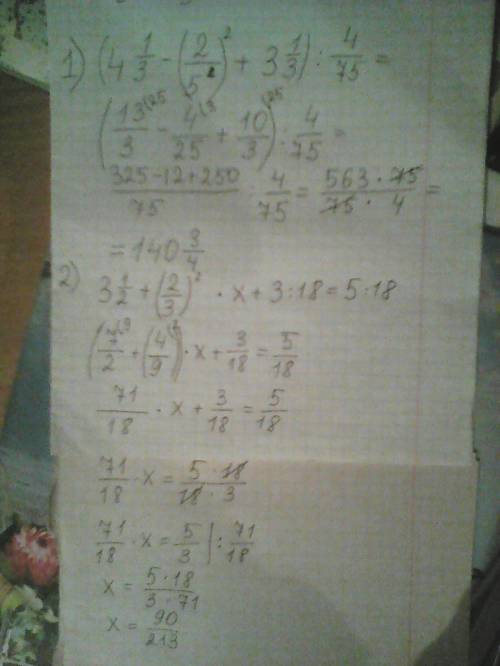 1) (4 1/3 - (2/5)² + 3 1/3) : 4/75 =
(13/3⁽²⁵ - 4/25⁽³ + 10/3⁽²⁵) : 4/75 =
(325-12+250)/75 : 4/75 = (563 · 75)/(75 · 4) =
= 140 3/4
2) 3 1/2 + (2/3)² · x + 3:18 = 5:18
(7/2⁽⁹ + (4/9)⁽²) · x + 3/18 = 5/18
71/18 · x + 3/18 = 5/18
71/18 · x = (5 · 18)/(18 · 3)
71/18 · x = 5/3 | : 71/18
x = (5·18)/(3·71)
x = 90/213